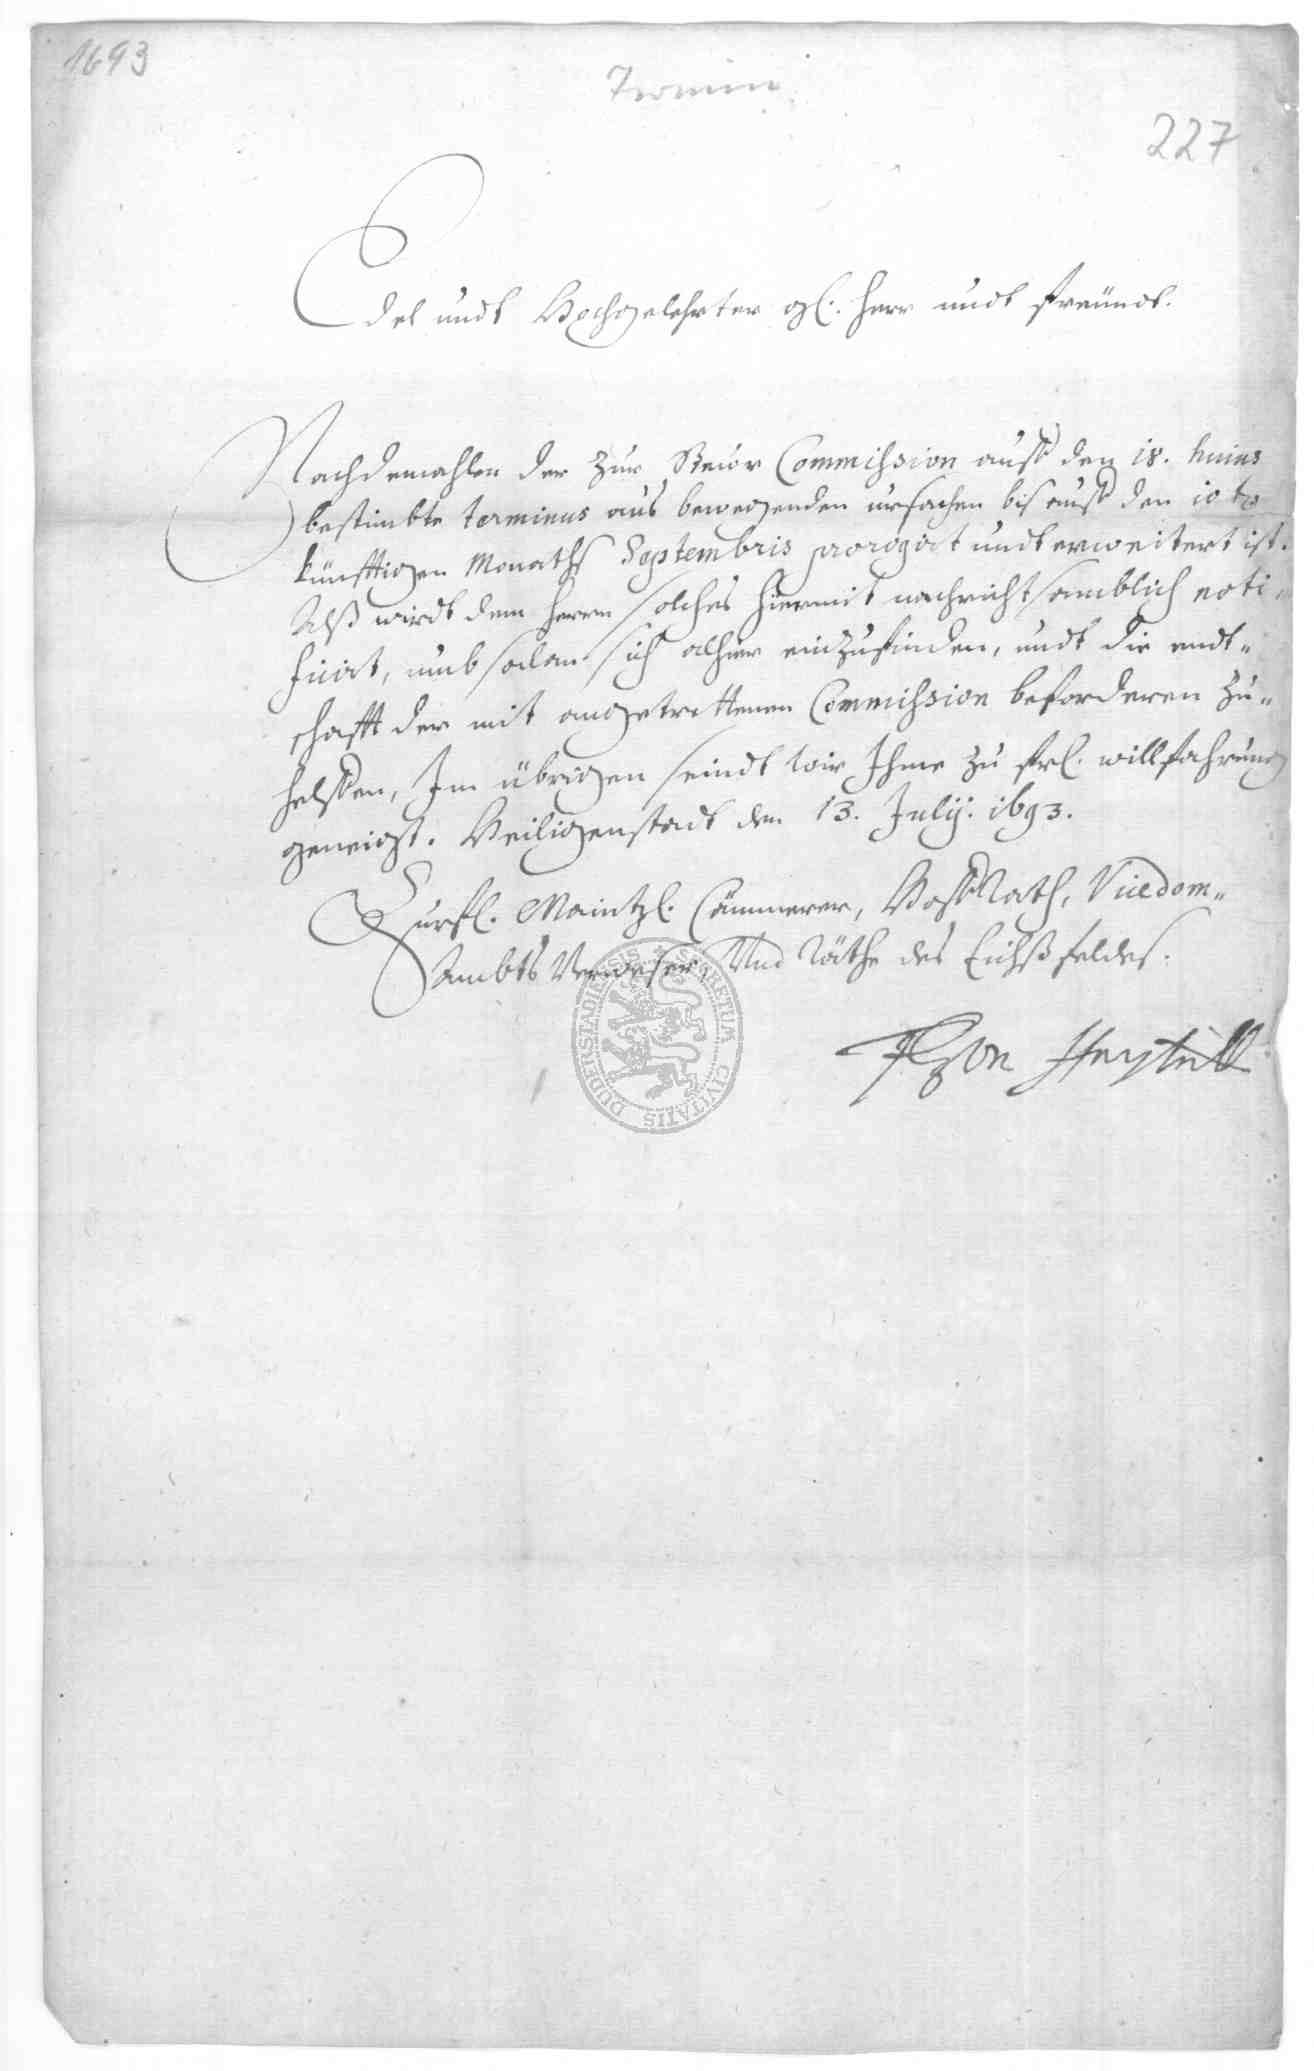 1693
Termin
227
Edel undt Hochgelehrter gl. Herr undt freündt.
Nachdemahlen der zur Steuer Commission auff den 18. huius
bestimbte terminus aus bewegenden ursachen bis auff den 10
künfftigen Monaths Septembris prorogirt undt erweitert ist.
Alß wirdt dem Herrn solches hiermit nachrichtsamblich noti
ficirt, umb sich alhier einzufinden, undt die endt„
schafft der mit angetrettenen Commission beforderen zu„
helffen, Im übrigen seindt wir Ihme zu frl. willfahrung
geneigt. Heiligenstadt den 13. Julij. 1693.
Churfl. Maintzl. Cämmerer, HoffRath, Vicedom„
Ambts Verweser, Und Räthe des Eichßfeldes.
DUDERSTADIENSIS SECRETUM CIVITATIS